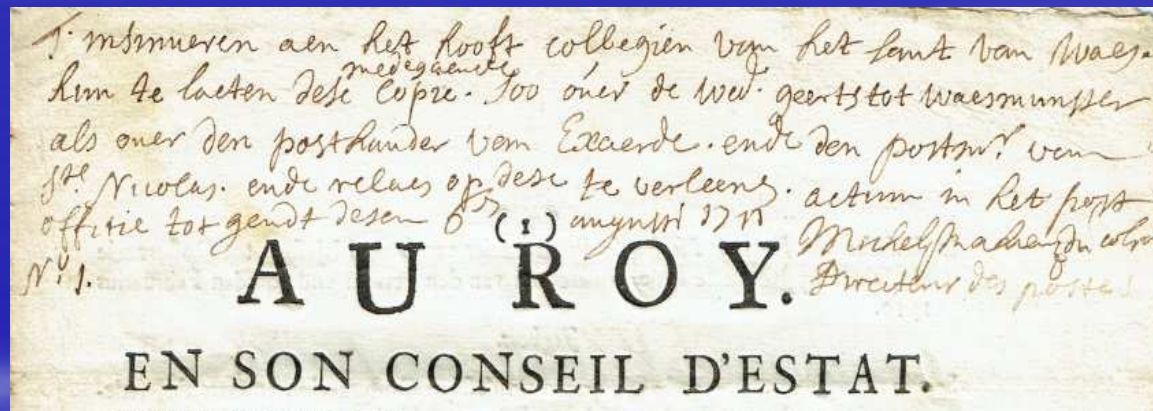 T' insinueren aen het hooft collegien van het Lant van Waes.
hun te laeten dese Copie. Soo over de wed. geerts tot waesmunster
als over den posthauder van Exaerde. ende den postmr. van
Ste. Nicolas. ende relaes op dese te verleenen. actum in het post
offitie tot gendt desen augusti 1711
(1)
Directeur des postes
No. 1.
AU ROY.
EN SON CONSEIL D'ESTAT.